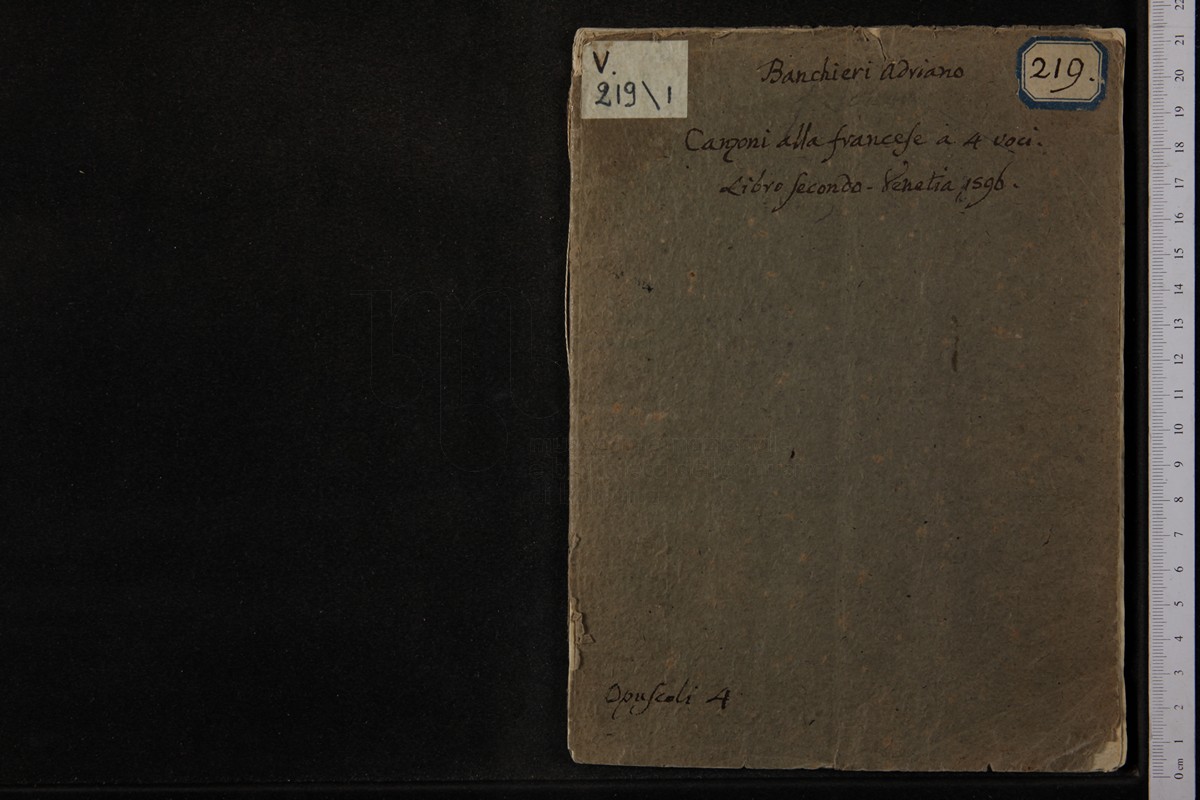 V.
219\1
219.
Banchieri Adriano
Canzoni alla francese à 4 voci.
Libro secondo - Venetia 1596.
Opuscoli 4
22
21
20
19
18
17
16
15
14
13
12
11
10
9
8
7
6
5
4
3
2
1
0 cm